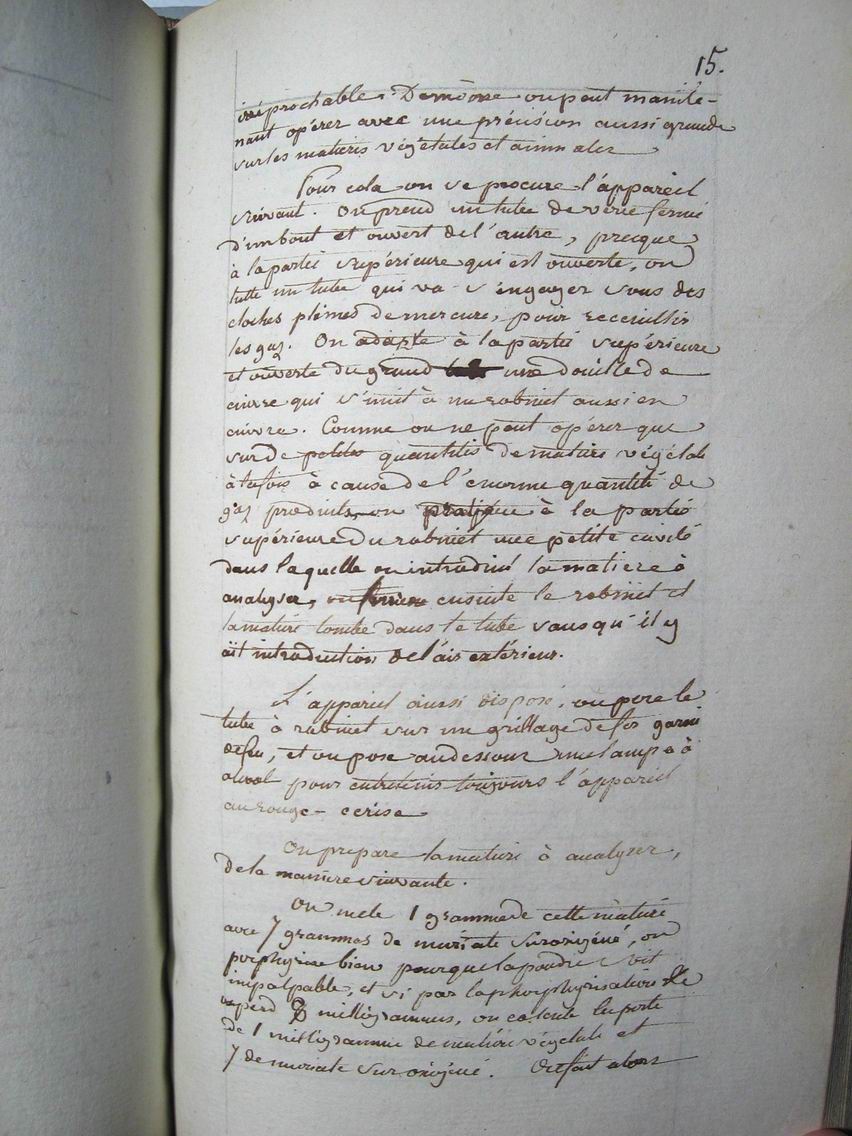 15.
irréprochable. De même on peut mainte-
nant opérer avec une précision aussi grande
sur les matieres végétales et animales
Pour cela on se procure l'appareil
suivant. On prend un tube de verre fermé
d'un bout et ouvert de l'autre, presque
à la partie supérieure qui est ouverte, on
lutte un tube qui va s'engager sous des
cloches pleines de mercure, pour recceuillir
les gaz. On adapte à la partie supérieure
et ouverte du grand une douille de
cuivre qui s'unit à un robinet aussi en
cuivre. Comme on ne peut opérer que
sur de petites quantités de matiere végétale
à la fois à cause de l'enorme quantité de
gaz produits, on pratique à la partie
supérieure du robinet une petite cavité
dans laquelle on introduit la matiere à
analyser, on ensuite le robinet et
la matiere tombe dans le tube sans qu'il y
ait introduction de l'air extérieur.
L'appareil ainsi disposé, on pose le
tube à robinet sur un grillage de fer garni
de feu, et on pose au dessous une lampe à
alcool pour entretenir toujours l'appareil
au rouge-cerise
On prepare la matiere à analyser,
de la maniere suivante.
On mele 1 gramme de cette matiere
avec 7 grammes de muriate suroxigéné, on
porphyrise bien pour que la poudre soit
impalpable, et si par la phorphyrisation
on perd 8 milligrammes, on calcule la perte
de 1 milligramme de matiere végétale et
7 de muriate suroxigéné. On fait alors